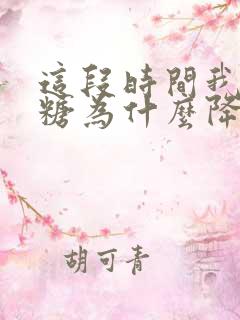 這段時間我
糖為什麼降
胡可青